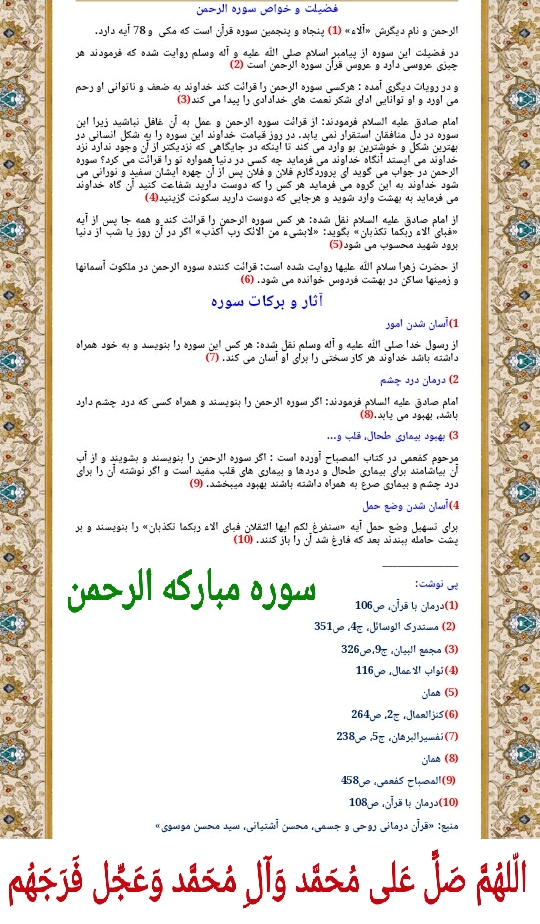 فضیلت و خواص سوره الرحمن
الرحمن و نام دیگرش «آلاء» (1) پنجاه و پنجمین سوره قرآن است که مکی و 78 آیه دارد.
در فضیلت این سوره از پیامبر اسلام صلی الله علیه و آله وسلم روایت شده که فرمودند هر
چیزی عروسی دارد و عروس قرآن سوره الرحمن است (2)
و در رویات دیگری آمده : هرکسی سوره الرحمن را قرائت کند خداوند به ضعف و ناتوانی او رحم
می آورد و او توانایی ادای شکر نعمت های خدادادی را پیدا می کند(3)
امام صادق علیه السلام فرمودند: از قرائت سوره الرحمن و عمل به آن غافل نباشید زیرا این
سوره در دل منافقان استقرار نمی یابد. در روز قیامت خداوند این سوره را به شکل انسانی در
بهترین شکل و خوشترین بو وارد می کند تا اینکه در جایگاهی که نزدیکتر از آن وجود ندارد نزد
خداوند می ایستد آنگاه خداوند می فرماید چه کسی در دنیا همواره تو را قرائت می کرد؟ سوره
الرحمن در جواب می گوید ای پروردگارم فلان و فلان پس از آن چهره ایشان سفید و نورانی می
شود خداوند به این گروه می فرماید هر کس را که دوست دارید شفاعت کنید آن گاه خداوند
می فرماید به بهشت وارد شوید و هرجایی که دوست دارید سکونت گزینید(4)
از امام صادق علیه السلام نقل شده: هر کس سوره الرحمن را قرائت کند و همه جا پس از آیه
«فبای الاء ربکما تکذبان» بگوید: «لابشیء من الائک رب اکذب» اگر در آن روز یا شب از دنیا
برود شهید محسوب می شود(5)
از حضرت زهرا سلام الله علیها روایت شده است: قرائت کننده سوره الرحمن در ملکوت آسمانها
و زمینها ساکن در بهشت فردوس خوانده می شود. (6)
آثار و برکات سوره
1)آسان شدن امور
از رسول خدا صلی الله علیه و آله وسلم نقل شده: هر کس این سوره را بنویسد و به خود همراه
داشته باشد خداوند هر کار سختی را برای او آسان می کند. (7)
2) درمان درد چشم
امام صادق علیه السلام فرمودند: اگر سوره الرحمن را بنویسند و همراه کسی که درد چشم دارد
باشد، بهبود می یابد.(8)
3) بهبود بیماری طحال، قلب و...
مرحوم کفعمی در کتاب المصباح آورده است : اگر سوره الرحمن را بنویسند و بشویند و از آب
آن بیاشامند برای بیماری طحال و دردها و بیماری های قلب مفید است و اگر نوشته آن را برای
درد چشم و بیماری صرع به همراه داشته باشند بهبود میبخشد. (9)
4)آسان شدن وضع حمل
برای تسهیل وضع حمل آیه «سنفرغ لکم ایها الثقلان فبای الاء ربکما تکذبان» را بنویسند و بر
پشت حامله ببندند بعد که فارغ شد آن را باز کنند. (10)
پی نوشت:
سوره مبارکه الرحمن
(1)درمان با قرآن، ص106
(2) مستدرک الوسائل، ج4، ص351
(3) مجمع البیان، ج9،ص326
(4)ثواب الاعمال، ص116
(5) همان
(6)کنزالعمال، ج2، ص264
(7)تفسیرالبرهان، ج5، ص238
(8) همان
(9)المصباح کفعمی، ص458
(10)درمان با قرآن، ص108
منبع: «قرآن درمانی روحی و جسمی، محسن آشتیانی، سید محسن موسوی»
اللّهُمَّ صَلِّ عَلی مُحَمَّد وَآلِ مُحَمَّد وَعَجِّل فَرَجَهُم